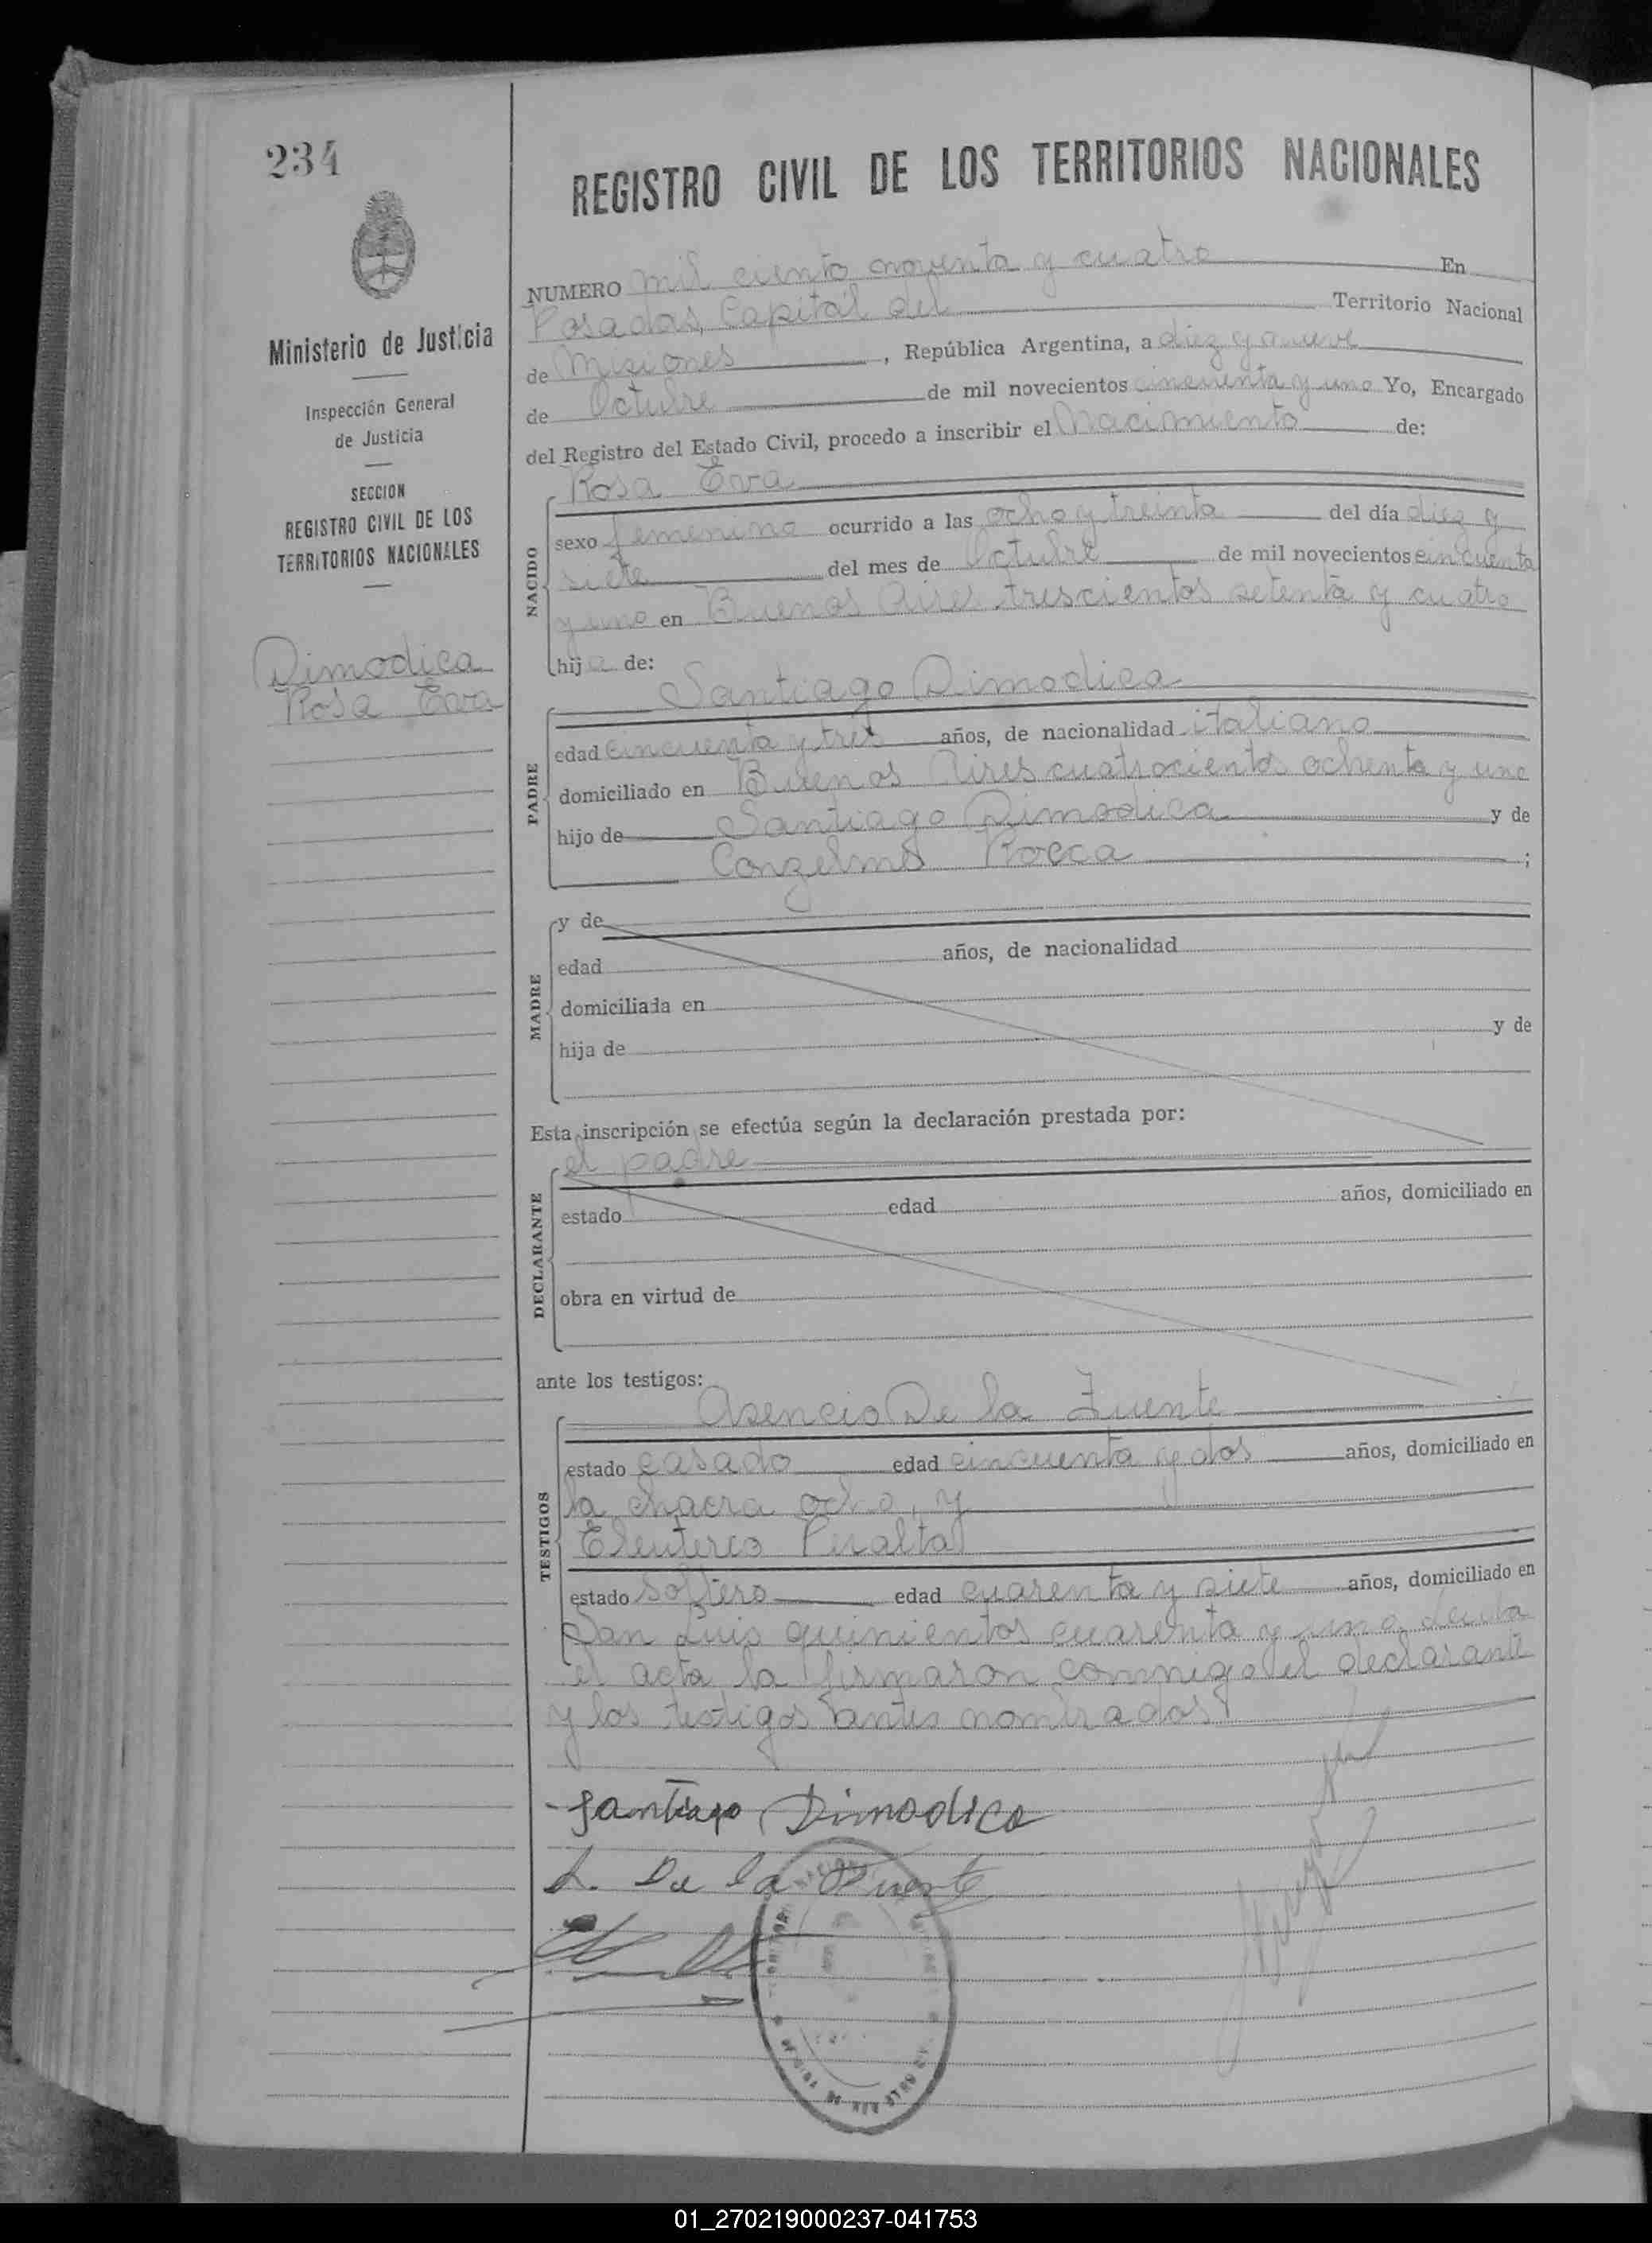 234
Ministerio de Justicia
Inspección General
de Justicia
SECCION
REGISTRO CIVIL DE LOS
TERRITORIOS NACIONALES
Dimodica
Rosa Eva
REGISTRO CIVIL DE LOS TERRITORIOS NACIONALES
NUMERO mil ciento noventa y cuatro En
Posadas, Capital del Territorio Nacional
de Misiones, República Argentina, a diez y nueve
de Octubre de mil novecientos cincuenta y uno Yo, Encargado
del Registro del Estado Civil, procedo a inscribir el Nacimiento de:
NACIDO
Rosa Eva
sexo femenino ocurrido a las ocho y treinta del día diez y
siete del mes de Octubre de mil novecientos cincuenta
y uno en Buenos Aires trescientos setenta y cuatro
hija de:
PADRE
Santiago Dimodica
edad cincuenta y tres años, de nacionalidad italiano
domiciliado en Buenos Aires cuatrocientos ochenta y uno
hijo de Santiago Dimodica y de
Rocca ;
MADRE
y de
edad años, de nacionalidad
domiciliada en
hija de y de
Esta inscripción se efectúa según la declaración prestada por:
DECLARANTE
el padre
estado edad años, domiciliado en
obra en virtud de
ante los testigos:
TESTIGOS
Asencio De la Fuente
estado casado edad cincuenta y dos años, domiciliado en
la chacra ocho, y
Eleuterio Peralta
estado soltero edad cuarenta y siete años, domiciliado en
San Luis quinientos cuarenta y uno. Leida
el acta la firmaron conmigo el declarante
y los testigos antes nombrados
Santiago Dimodica
A. De la Fuente
01_270219000237-041753